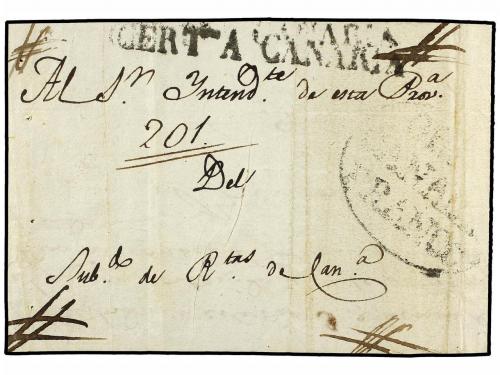 CERTª A CANARIA
Al Sr. Yntendte. de esta Prova.
201.
Del
Subdo. de Rtas de Cana.